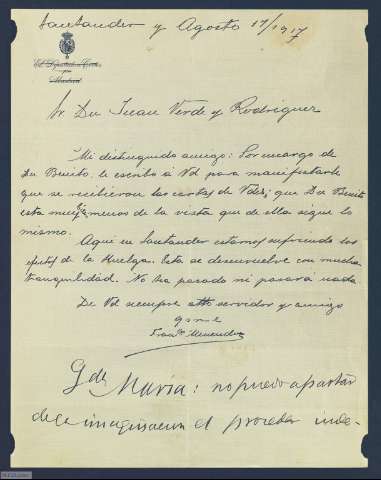 Santander y Agosto 17/1917
El Diputado a Cortes
por
Madrid
Sr. Dn Juan Verde y Rodriguez
Mi distinguido amigo: Por encargo de
Dn Benito, le escribo á Vd para manifestarle
que se recibieron las cartas de Vdes; que Dn Benito
esta muy menos de la vista que de ella sigue lo
mismo.
Aqui en Santander estamos sufriendo los
efectos de la Huelga. Esta se desenvuelve con mucha
tranquilidad. No ha pasado ni pasará nada
De Vd siempre servidor y amigo
q s m e
Franco Menendez
Gda María: no puedo apartar
de la imaginacion el proceder inde-